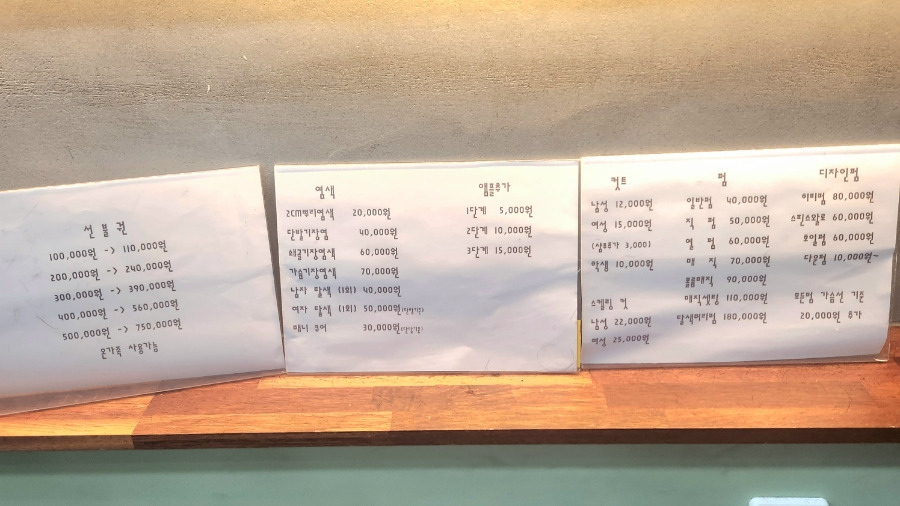 선 불 권
100,000원 -> 110,000원
200,000원 -> 240,000원
300,000원 -> 390,000원
400,000원 -> 560,000원
500,000원 -> 750,000원
온가족 사용가능
염색
2CM뿌리염색 20,000원
단발기장염 40,000원
쇄골기장염색 60,000원
가슴기장염색 70,000원
남자 탈색 (1회) 40,000원
여자 탈색 (1회) 50,000원
매니 큐어 30,000원
앰플추가
1단계 5,000원
2단계 10,000원
3단계 15,000원
컷트
남성 12,000원
여성 15,000원
(샴푸추가 3,000)
학생 10,000원
스켈링 컷
남성 22,000원
여성 25,000원
펌
일반펌 40,000원
직 펌 50,000원
열 펌 60,000원
매 직 70,000원
볼륨매직 90,000원
매직셋팅 110,000원
탈색머리펌 180,000원
디자인펌
히피펌 80,000원
스핀스왈로 60,000원
호일펌 60,000원
다운펌 10,000원~
모든펌 가슴선 기준
20,000원 추가